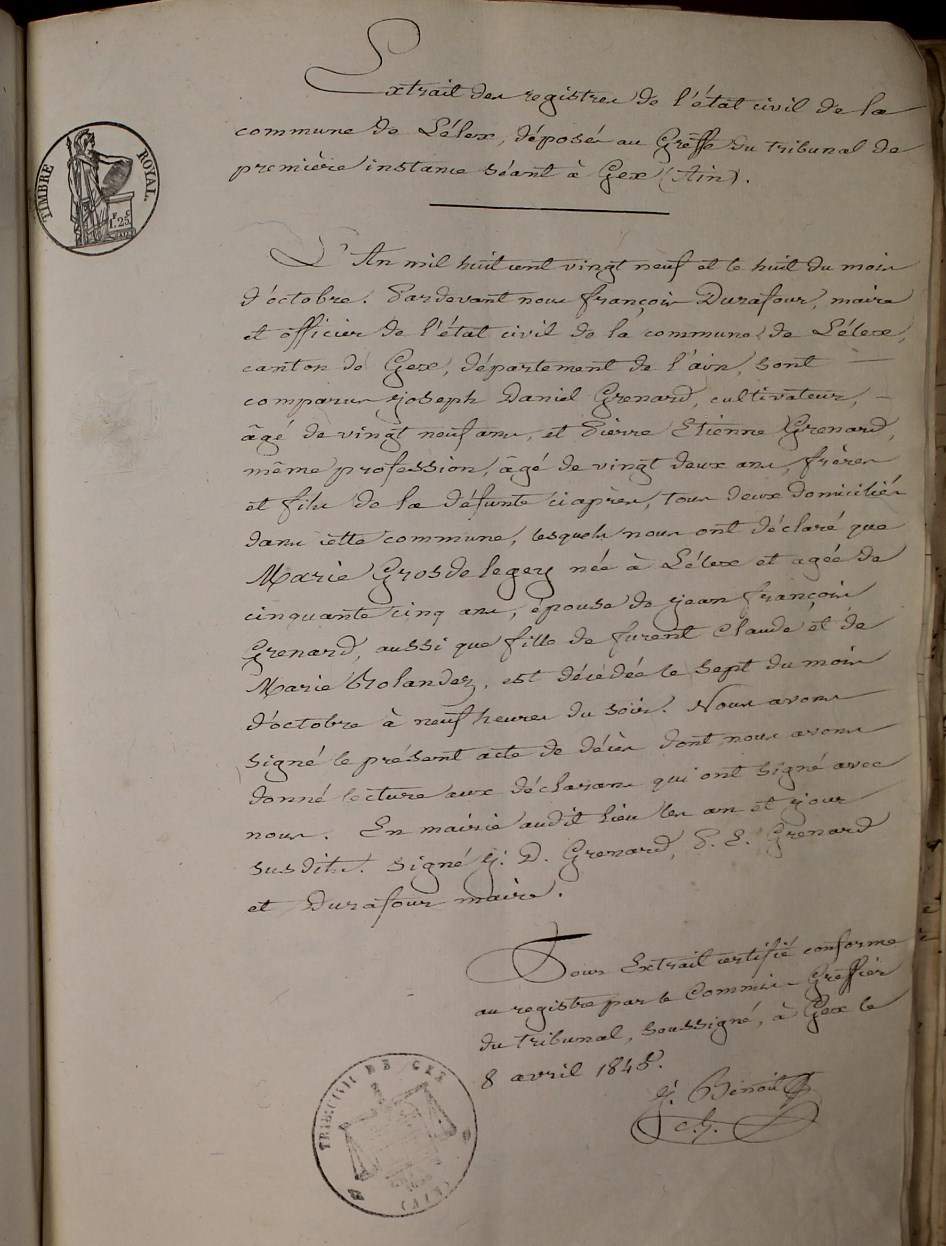 TIMBRE ROYAL.
1F 25C
Extrait des registres de l'état civil de la
commune de Lélex, déposés au Greffe du tribunal de
première instance séant à Gex (Ain).
L'An mil huit cent vingt neuf et le huit du mois
d'octobre. Pardevant nous françois Durafour, maire
et officier de l'état civil de la commune de Lélex,
canton de Gex, département de l'ain, sont
comparus joseph Daniel Grenard, cultivateur,
âgé de vingt neuf ans, et Pierre Etienne Grenard,
même profession, âgé de vingt deux ans, frères
et fils de la défunte ciaprès, tous deux domiciliés
dans cette commune, lesquels nous ont déclaré que
Marie Grosdelegery née à Lélex et agée de
cinquante cinq ans, épouse de jean françois
Grenard, aussi que fille de furent Claude et de
Marie Rolandez, est décédée le sept du mois
d'octobre à neuf heures du soir. Nous avons
signé le présent acte de décès dont nous avons
donné lecture aux déclarans qui ont signé avec
nous. En mairie audit lieu les an et jour
susdits. signé j. D. Grenard, P. E. Grenard
et Durafour maire.
Pour Extrait certifié conforme
au registre par le Commis Greffier
du tribunal, soussigné, à Gex le
8 avril 1848.
j. Benoit
c. g.
TRIBUNAL DE GEX
(AIN)